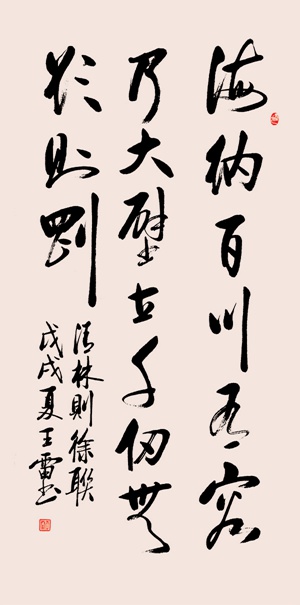 海纳百川有容
乃大壁立千仞無
欲则剛
清林則徐联
戊戌夏王雷书